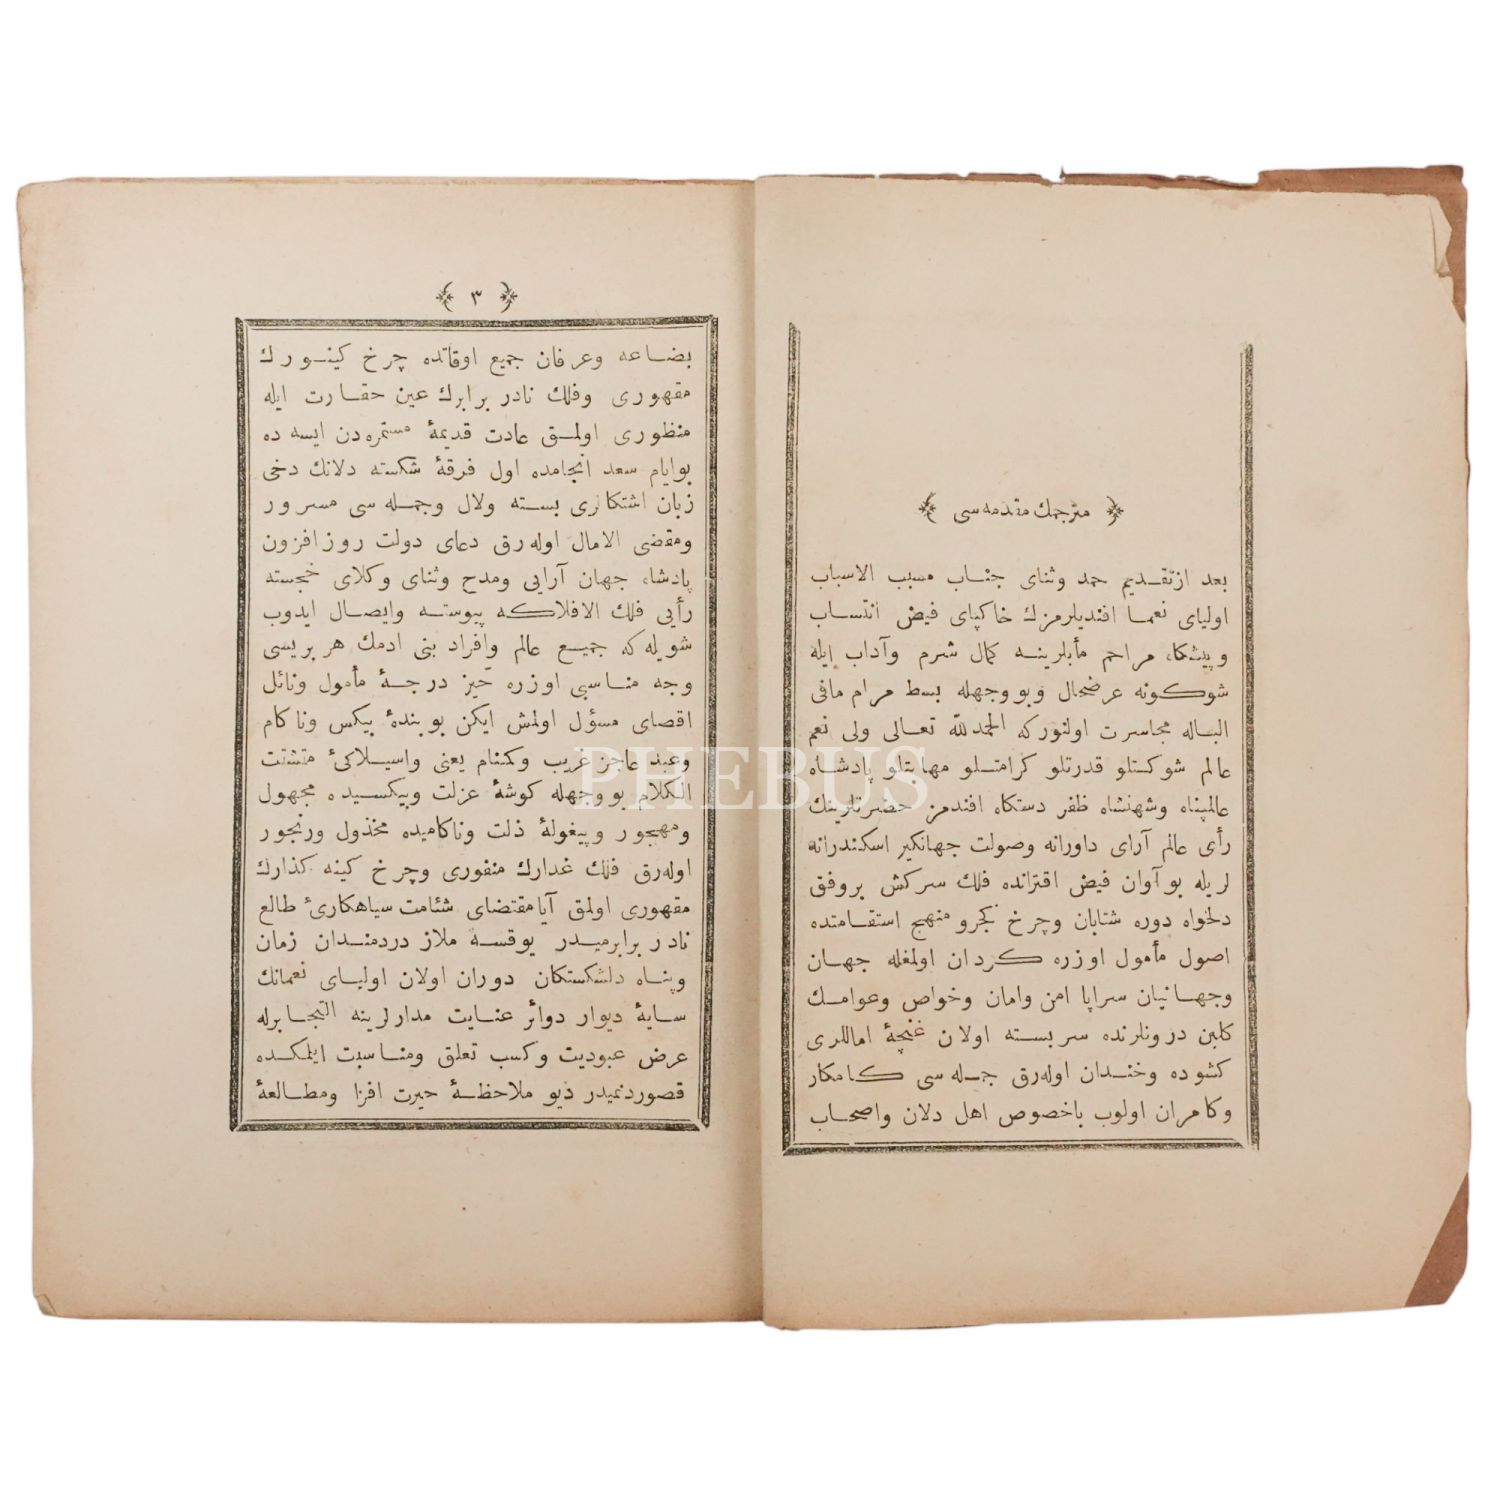 مترجمك مقدمه سی
بعد ازتقدیم حمد وثنای جناب مسبب الاسباب
اولیای نعما افندیلرمزك خاکپای فیض انتساب
وپیشگاه مراحم مأبلرینه کمال شرم وآداب ایله
شوکونه عرضحال وبووجهله بسط مرام مافی
الباله مجاسرت اولنورکه الحمدلله تعالی ولی نعم
عالم شوکتلو قدرتلو کرامتلو مهابتلو پادشاه
عالمپناه وشهنشاه ظفر دستکاه افندمز حضرتلرینك
رأی عالم آرای داورانه وصولت جهانکیر اسکندرانه
لریله بوآوان فیض اقترانده فلك سرکش بروفق
دلخواه دوره شتابان وچرخ کجرو منهج استقامتده
اصول مأمول اوزره کردان اولمغله جهان
وجهانیان سراپا امن وامان وخواص وعوامك
کلبن درونلرنده سربسته اولان غنچهٔ اماللری
کشوده وخندان اوله رق جمله سی کامکار
وکامران اولوب باخصوص اهل دلان واصحاب
٣
بضاعه وعرفان جمیع اوقاتده چرخ کینورك
مقهوری وفلك نادر برابرك عین حقارت ایله
منظوری اولمق عادت قدیمهٔ مستمره دن ایسه ده
بوایام سعد انجامده اول فرقهٔ شکسته دلانك دخی
زبان اشتکالری بسته ولال وجمله سی مسرور
ومقضی الامال اوله رق دعای دولت روزافزون
پادشاه جهان آرایی ومدح وثنای وکلای خجسته
رأیی فلك الافلاکه پیوسته وایصال ایدوب
شویله که جمیع عالم وافراد بنی ادمك هر بریسی
وجه مناسبی اوزره حیز درجهٔ مأمول ونائل
اقصای مسؤل اولمش ایکن بوبندهٔ بیکس وناکام
وعبد عاجز غریب وکمنام یعنی واسیلاکیٔ متشتت
الکلام بووجهله کوشهٔ عزلت وبیکسیده مجهول
ومهجور وپیغولهٔ ذلت وناکامیده مخذول ورنجور
اوله رق فلك غدارك منفوری وچرخ کینه کذارك
مقهوری اولمق آیامقتضای شئامت سیاهکاریٔ طالع
نادر برابرمیدر یوقسه ملاز دردمندان زمان
وپناه دلشکستکان دوران اولان اولیای نعمانك
سایهٔ دیوار دوائر عنایت مدارلرینه التجابرله
عرض عبودیت وکسب تعلق ومناسبت ایلمکده
قصوردنمیدر دیو ملاحظهٔ حیرت افزا ومطالعهٔ
PHEBUS